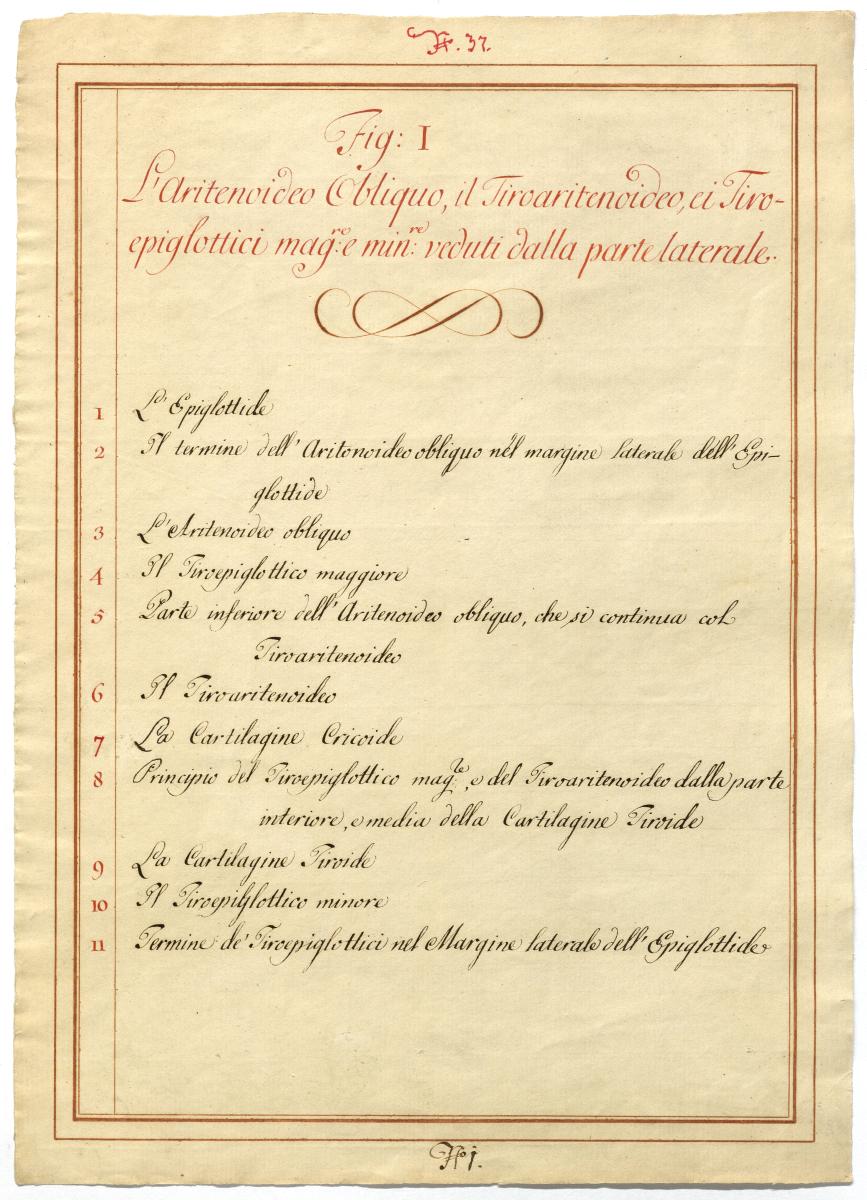 N. 37.
Fig: I
L'Aritenoideo Obliquo, il Tiroaritenoideo, ei Tiro-
epiglottici mag:re e min:re veduti dalla parte laterale.
1 L'Epiglottide
2 Il termine dell'Aritonoideo obliquo nel margine laterale dell'Epi-
glottide
3 L'Aritenoideo obliquo
4 Il Tiroepiglottico maggiore
5 Parte inferiore dell'Aritenoideo obliquo, che si continua col
Tiroaritenoideo
6 Il Tiroaritenoideo
7 La Cartilagine Cricoide
8 Principio del Tiroepiglottico mag:re, e del Tiroaritenoideo dalla parte
interiore, e media della Cartilagine Tiroide
9 La Cartilagine Tiroide
10 Il Tiroepiglottico minore
11 Termine de' Tiroepiglottici nel Margine laterale dell'Epiglottide
No 1.